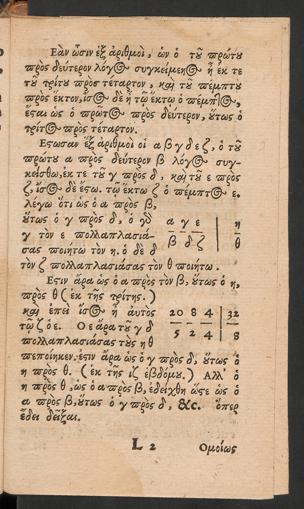 Εὰν ὦσιν ἓξ ἀριθμοὶ, ὧν ὁ τοῦ πρώτου
πρὸς δεύτερον λόγος συγκείμενος ἢ ἐκ τε
τοῦ τρίτου πρὸς τέταρτον, καὶ τοῦ πέμπτου
πρὸς ἕκτον, ἴσος δὲ ἢ τῷ ἕκτῳ ὁ πέμπτος,
ἔσται ὡς ὁ πρῶτος πρὸς δεύτερον, οὕτως ὁ
τρίτος πρὸς τέταρτον.
Εστωσαν ἓξ ἀριθμοὶ οἱ α β γ δ ε ζ, ὁ τοῦ
πρώτου α πρὸς δεύτερον β λόγος συγ-
κείσθω, ἐκ τε τοῦ γ πρὸς δ, καὶ τοῦ ε πρὸς
ζ, ἴσος δὲ ἔστω. τῷ ἕκτῳ ζ ὁ πέμπτος ε,
λέγω ὅτι ὡς ὁ α πρὸς β,
οὕτως ὁ γ πρὸς δ, ὁ γὸ
γ τὸν ε πολλαπλασιά-
σας ποιήτω τὸν η. ὁ δὲ δ
α γ ε | η
β δ ζ | θ
τὸν ζ πολλαπλασιάσας τὸν θ ποιήτω.
Εσιν ἄρα ὡς ὁ α πρὸς τὸν β, οὕτως ὁ η,
πρὸς θ (ἐκ τῆς τρίτης.)
καὶ ἐπεὶ ἴσος ἢ αὐτὸς
τῷ ζ ὁ ε. Ο ε ἄρα τὸν γ δ
20 8 4 | 32
5 2 4 | 8
πολλαπλασιάσας τοὺς η θ
πεποίηκεν. ἔσιν ἄρα ὡς ὁ γ πρὸς δ, οὕτως ὁ
η πρὸς θ. (ἐκ τῆς ιζ ἑβδόμου.) Αλλ' ὁ
η πρὸς θ, ὡς ὁ α πρὸς β, ἐδείχθη ὥστε ὡς ὁ
α πρὸς β, οὕτως ὁ γ πρὸς δ, &c. ὅπερ
ἔδει δεῖξαι.
L 2
Ομοίως